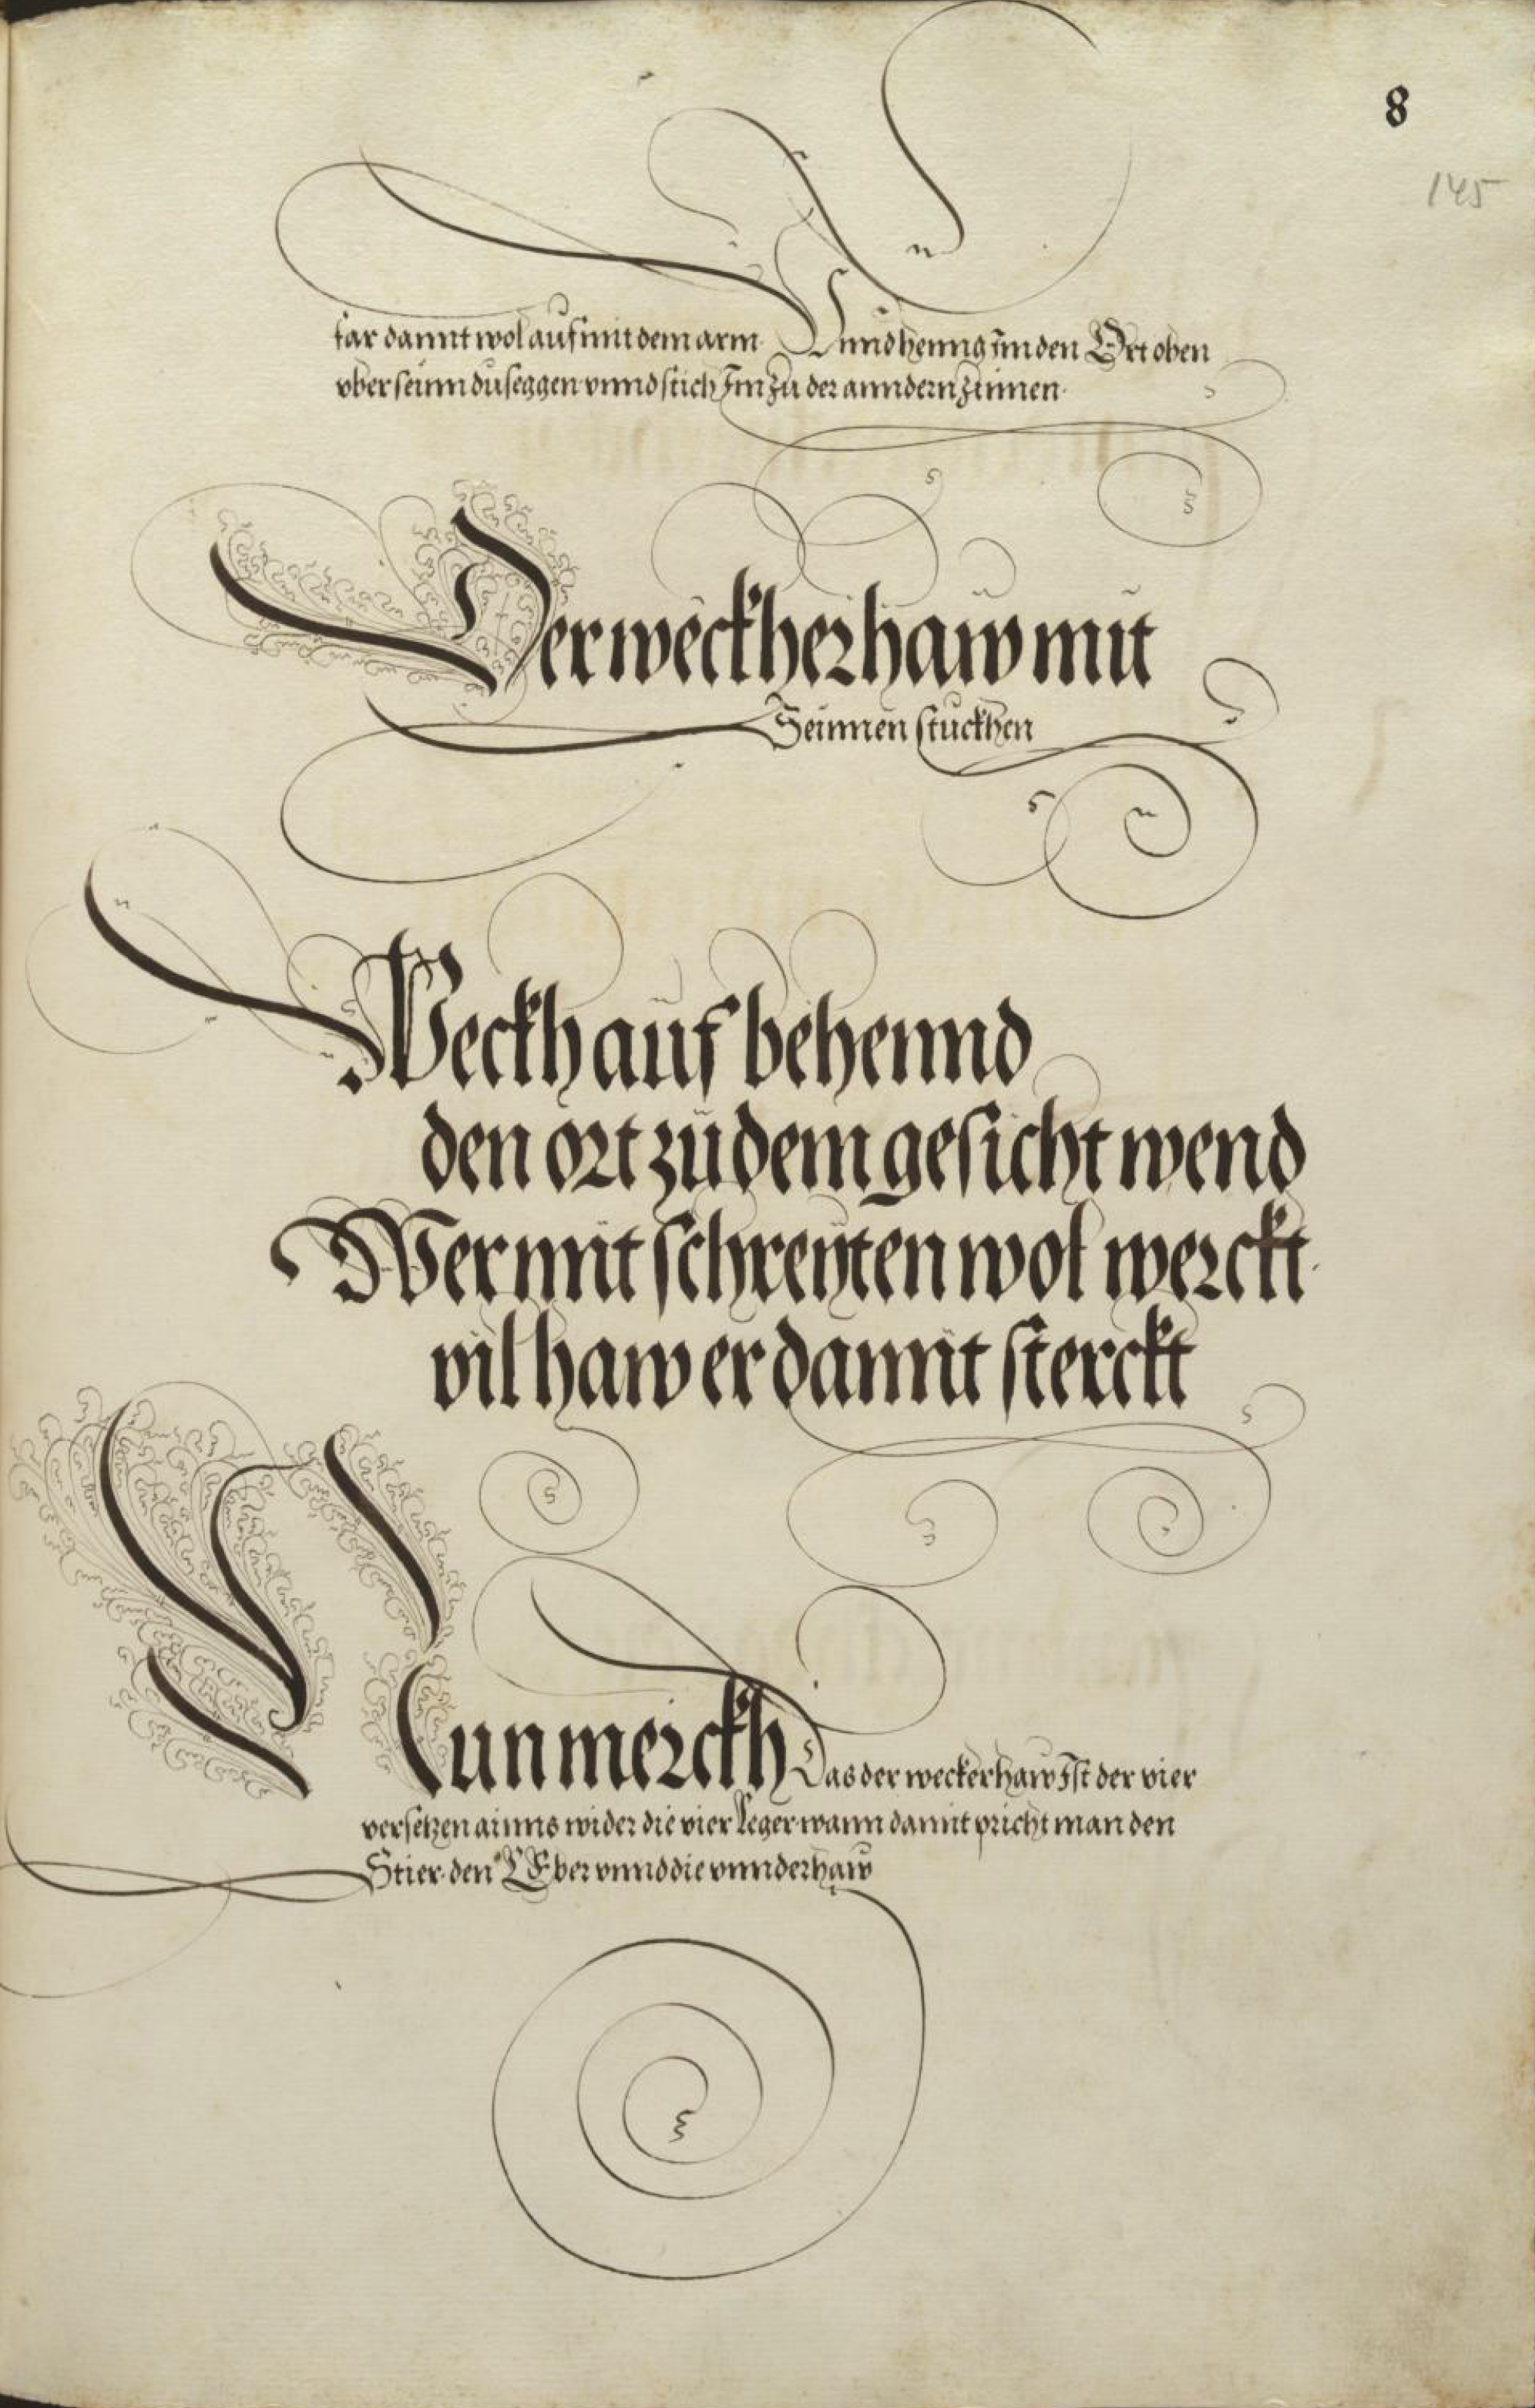 8
145
far damit wol auf mit dem arm Unnd henng im den Ort oben
vber seinn du seggen vnnd stich Im zu der anndern zinnen.
Der weckherhaw mit
Seinnen stuckhen
Weckh auf behennd
den ort zu dem gesicht wend
Wer mit schreyten wol merckt.
vil haw er damit sterckt
Nun merckh Das der weckerhaw Ist der vier
versetzen ainns wider die vier leger wann damit pricht man den
Stier den Eber vnnd die vnnderhaw